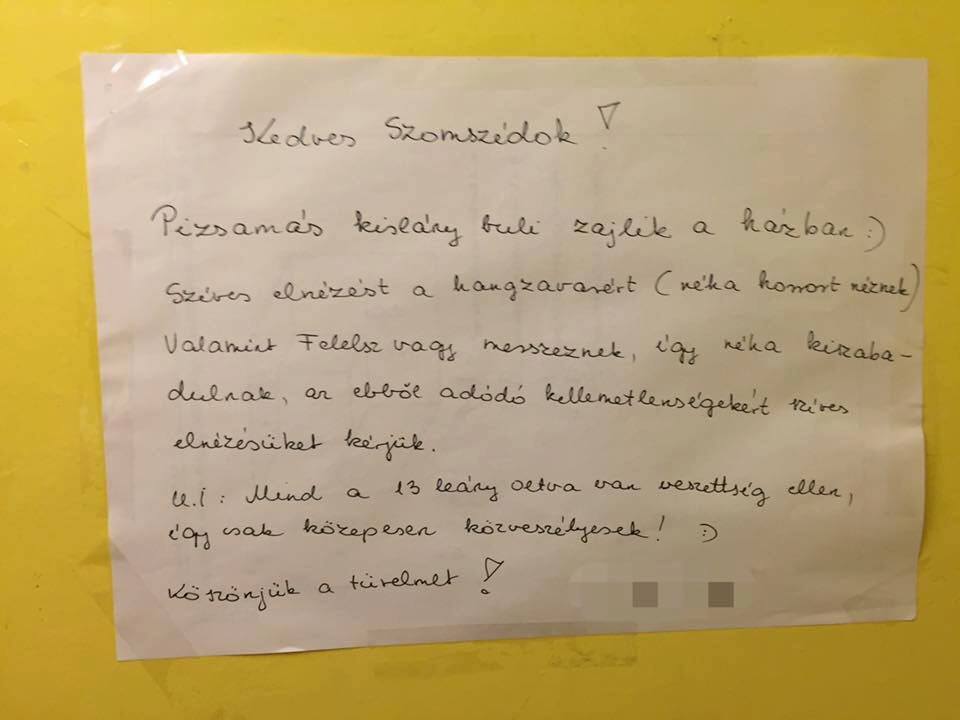 Kedves Szomszédok!
Pizsamás kislány buli zajlik a házban :)
Szíves elnézést a hangzavarért (néha horrort néznek)
Valamint Felelsz vagy merszeznek, így néha kiszaba-
dulnak, az ebből adódó kellemetlenségekért szíves
elnézésüket kérjük.
U.i: Mind a 13 leány oltva van veszettség ellen,
így csak közepesen közveszélyesek! :)
Köszönjük a türelmet!